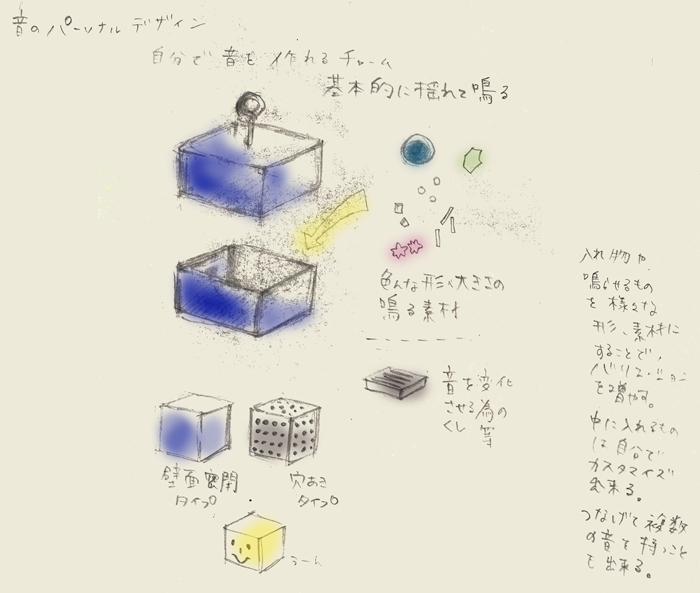 音のパーソナルデザイン
自分で音を作れるチャーム
基本的に揺れて鳴る
色んな形、大きさの
鳴る素材
音を変化
させる為の
くし 等
壁面密閉
タイプ
穴あき
タイプ
うーん
入れ物や
鳴らせるもの
を様々な
形、素材に
することで、
バリエーション
を増やす。
中に入れるもの
は自分で
カスタマイズ
出来る。
つなげて複数
の音を持つこと
も出来る。